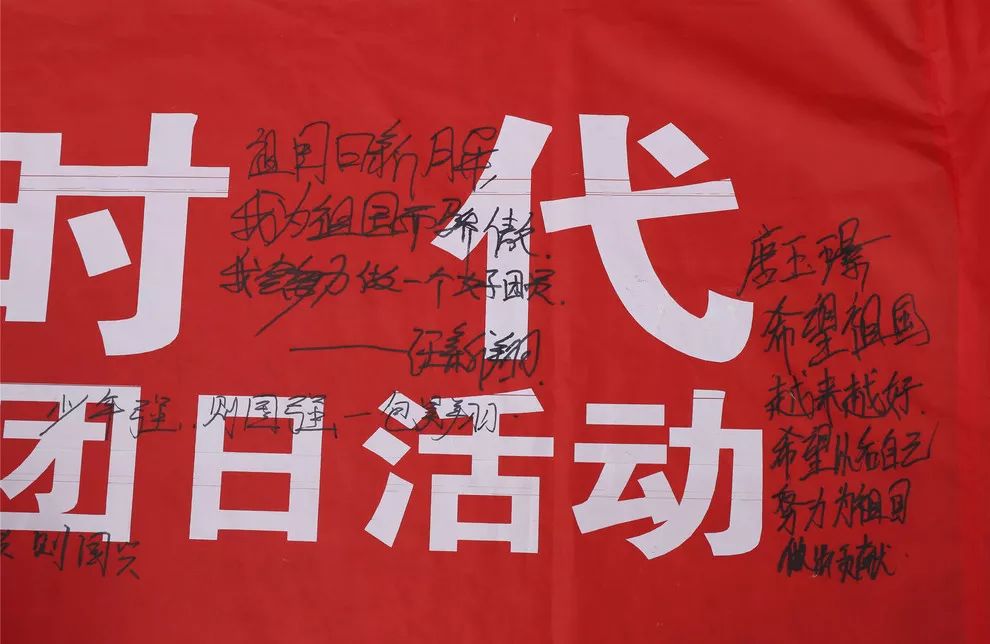 时代
祖国日新月异,
我为祖国而骄傲.
我会努力做一个好团员.
——任新翔.
唐玉
希望祖国
越来越好.
希望以后自己
努力为祖国
做出贡献.
少年强,则国强—包昊翔.
团日活动
则国兴